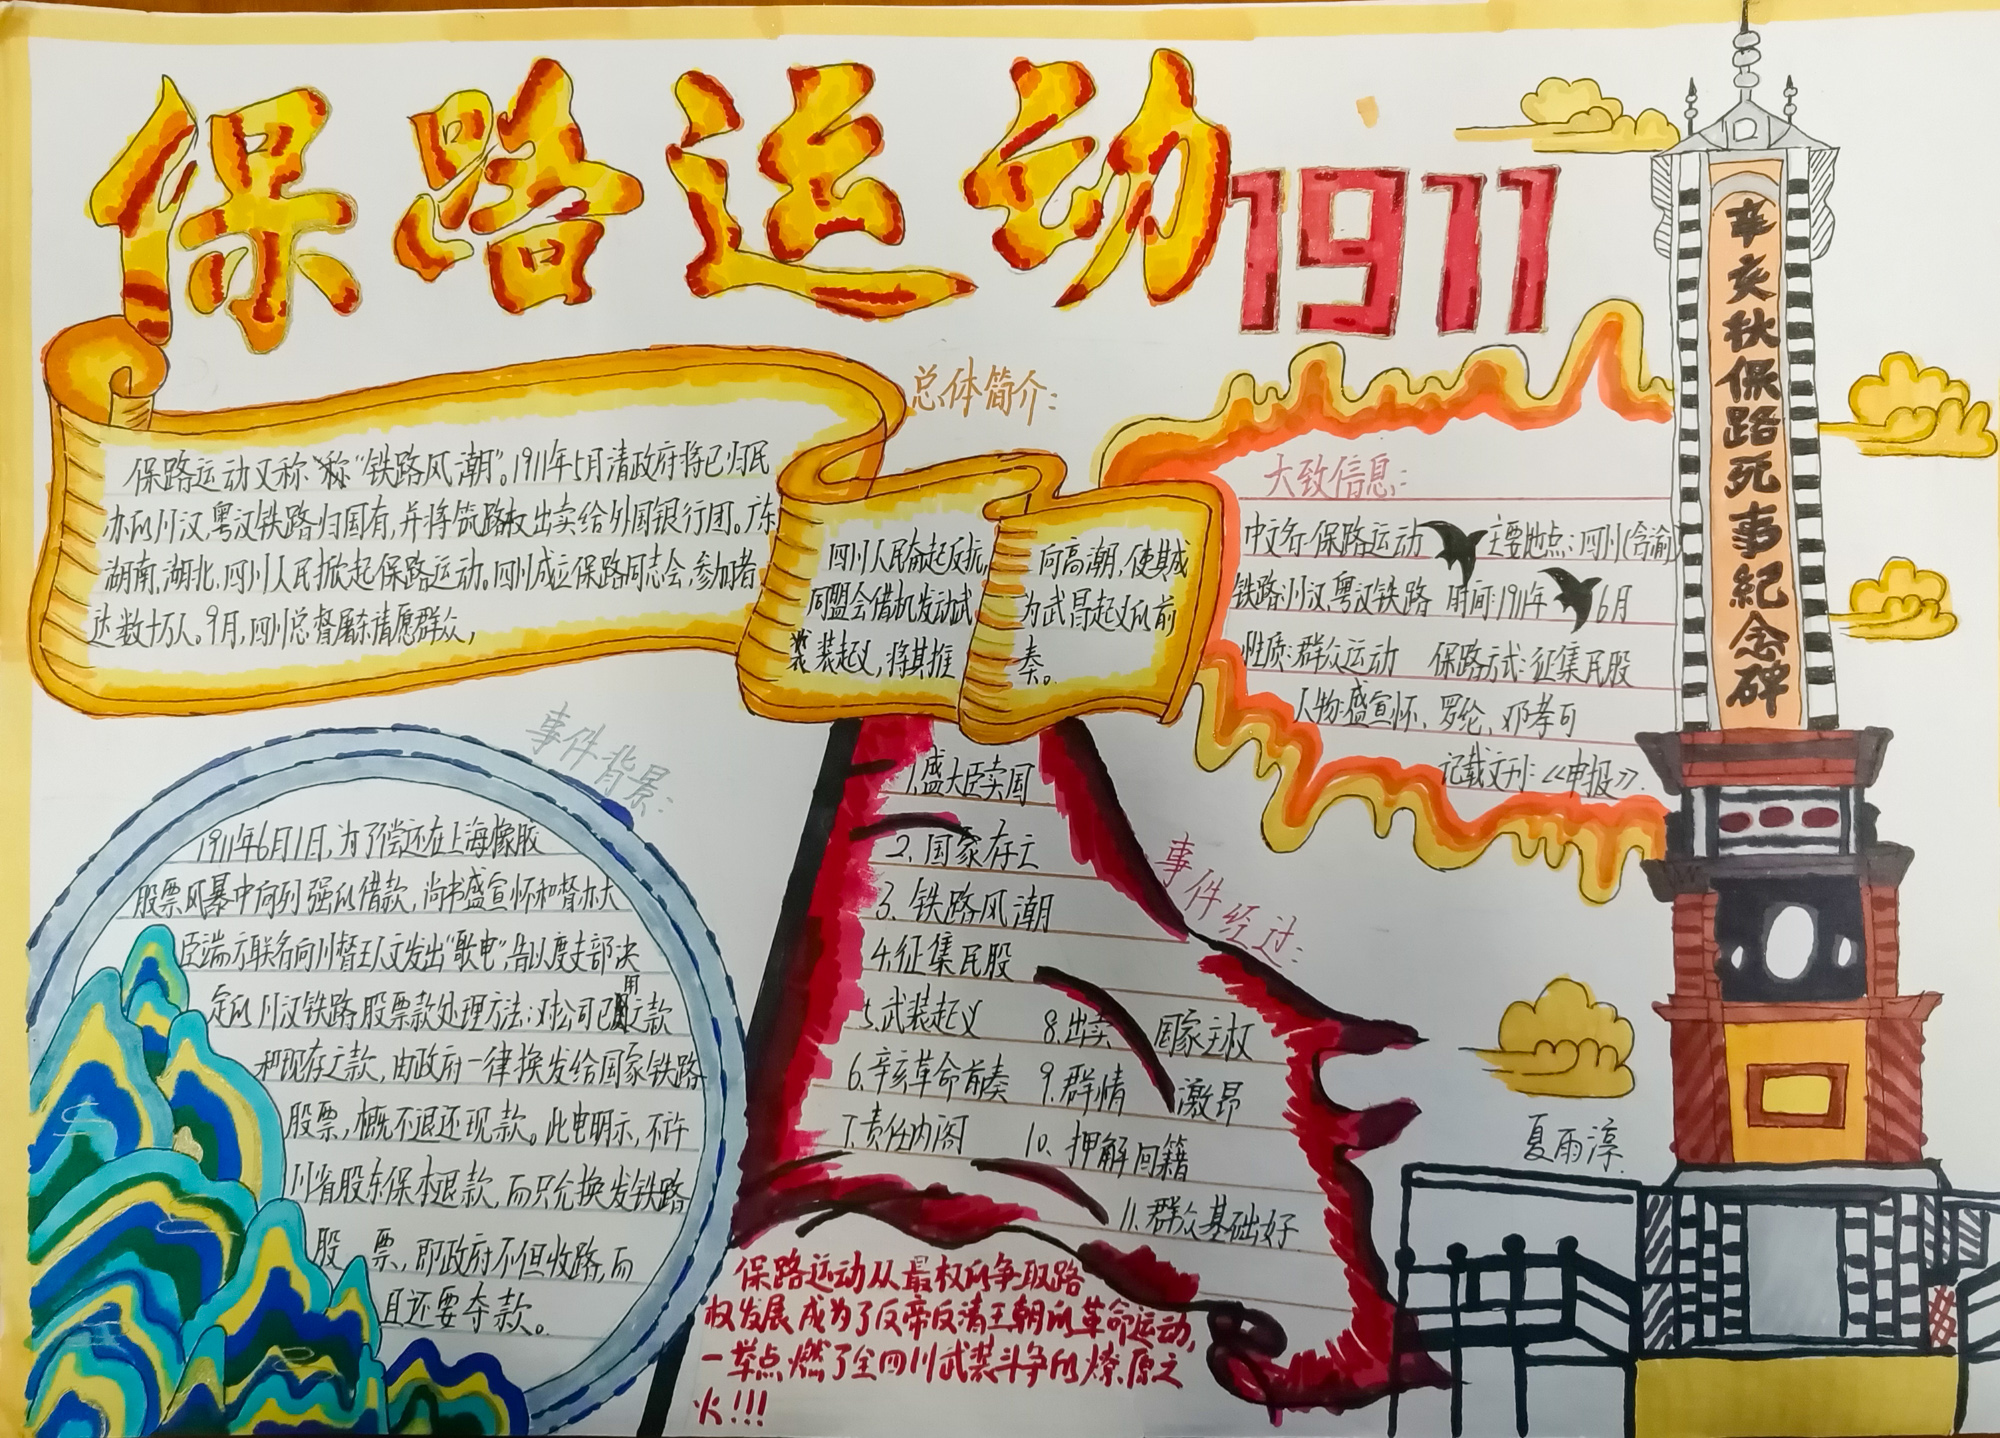 保路运动
1911
总体简介:
保路运动又称"铁路风潮"。1911年5月清政府将已归民
办的川汉,粤汉铁路归国有,并将筑路权出卖给外国银行团。广东
湖南,湖北,四川人民掀起保路运动。四川成立保路同志会,参加者
达数十万人。9月,四川总督屠杀请愿群众,
四川人民奋起反抗,
同盟会借机发动武
装起义,将其推
向高潮,使其成
为武昌起义的前
奏。
大致信息:
中文名:保路运动 主要地点:四川(含渝)
铁路:川汉,粤汉铁路 时间:1911年 6月
性质:群众运动 保路方式:征集民股
人物:盛宣怀、罗纶、邓孝可
记载文刊:《申报》.
辛亥秋保路死事紀念碑
事件背景:
1911年6月1日,为了偿还在上海橡胶
股票风暴中向列强的借款,尚书盛宣怀和督办大
臣端方联名向川督王人文发出"歌电",告以度支部决
定的川汉铁路股票款处理方法:对公司已用之款
和现存之款,由政府一律换发给国家铁路
股票,概不退还现款。此电明示,不许
川省股东保本退款,而只允换发铁路
股票,即政府不但收路,而
且还要夺款。
事件经过:
1.盛大臣卖国
2.国家存亡
3.铁路风潮
4.征集民股
5.武装起义 8.出卖国家主权
6.辛亥革命前奏 9.群情激昂
7.责任内阁 10.押解回籍
11.群众基础好
保路运动从最权的争取路
权发展成为了反帝反清王朝的革命运动,
一举点燃了全四川武装斗争的燎原之
火!!!
夏雨淳